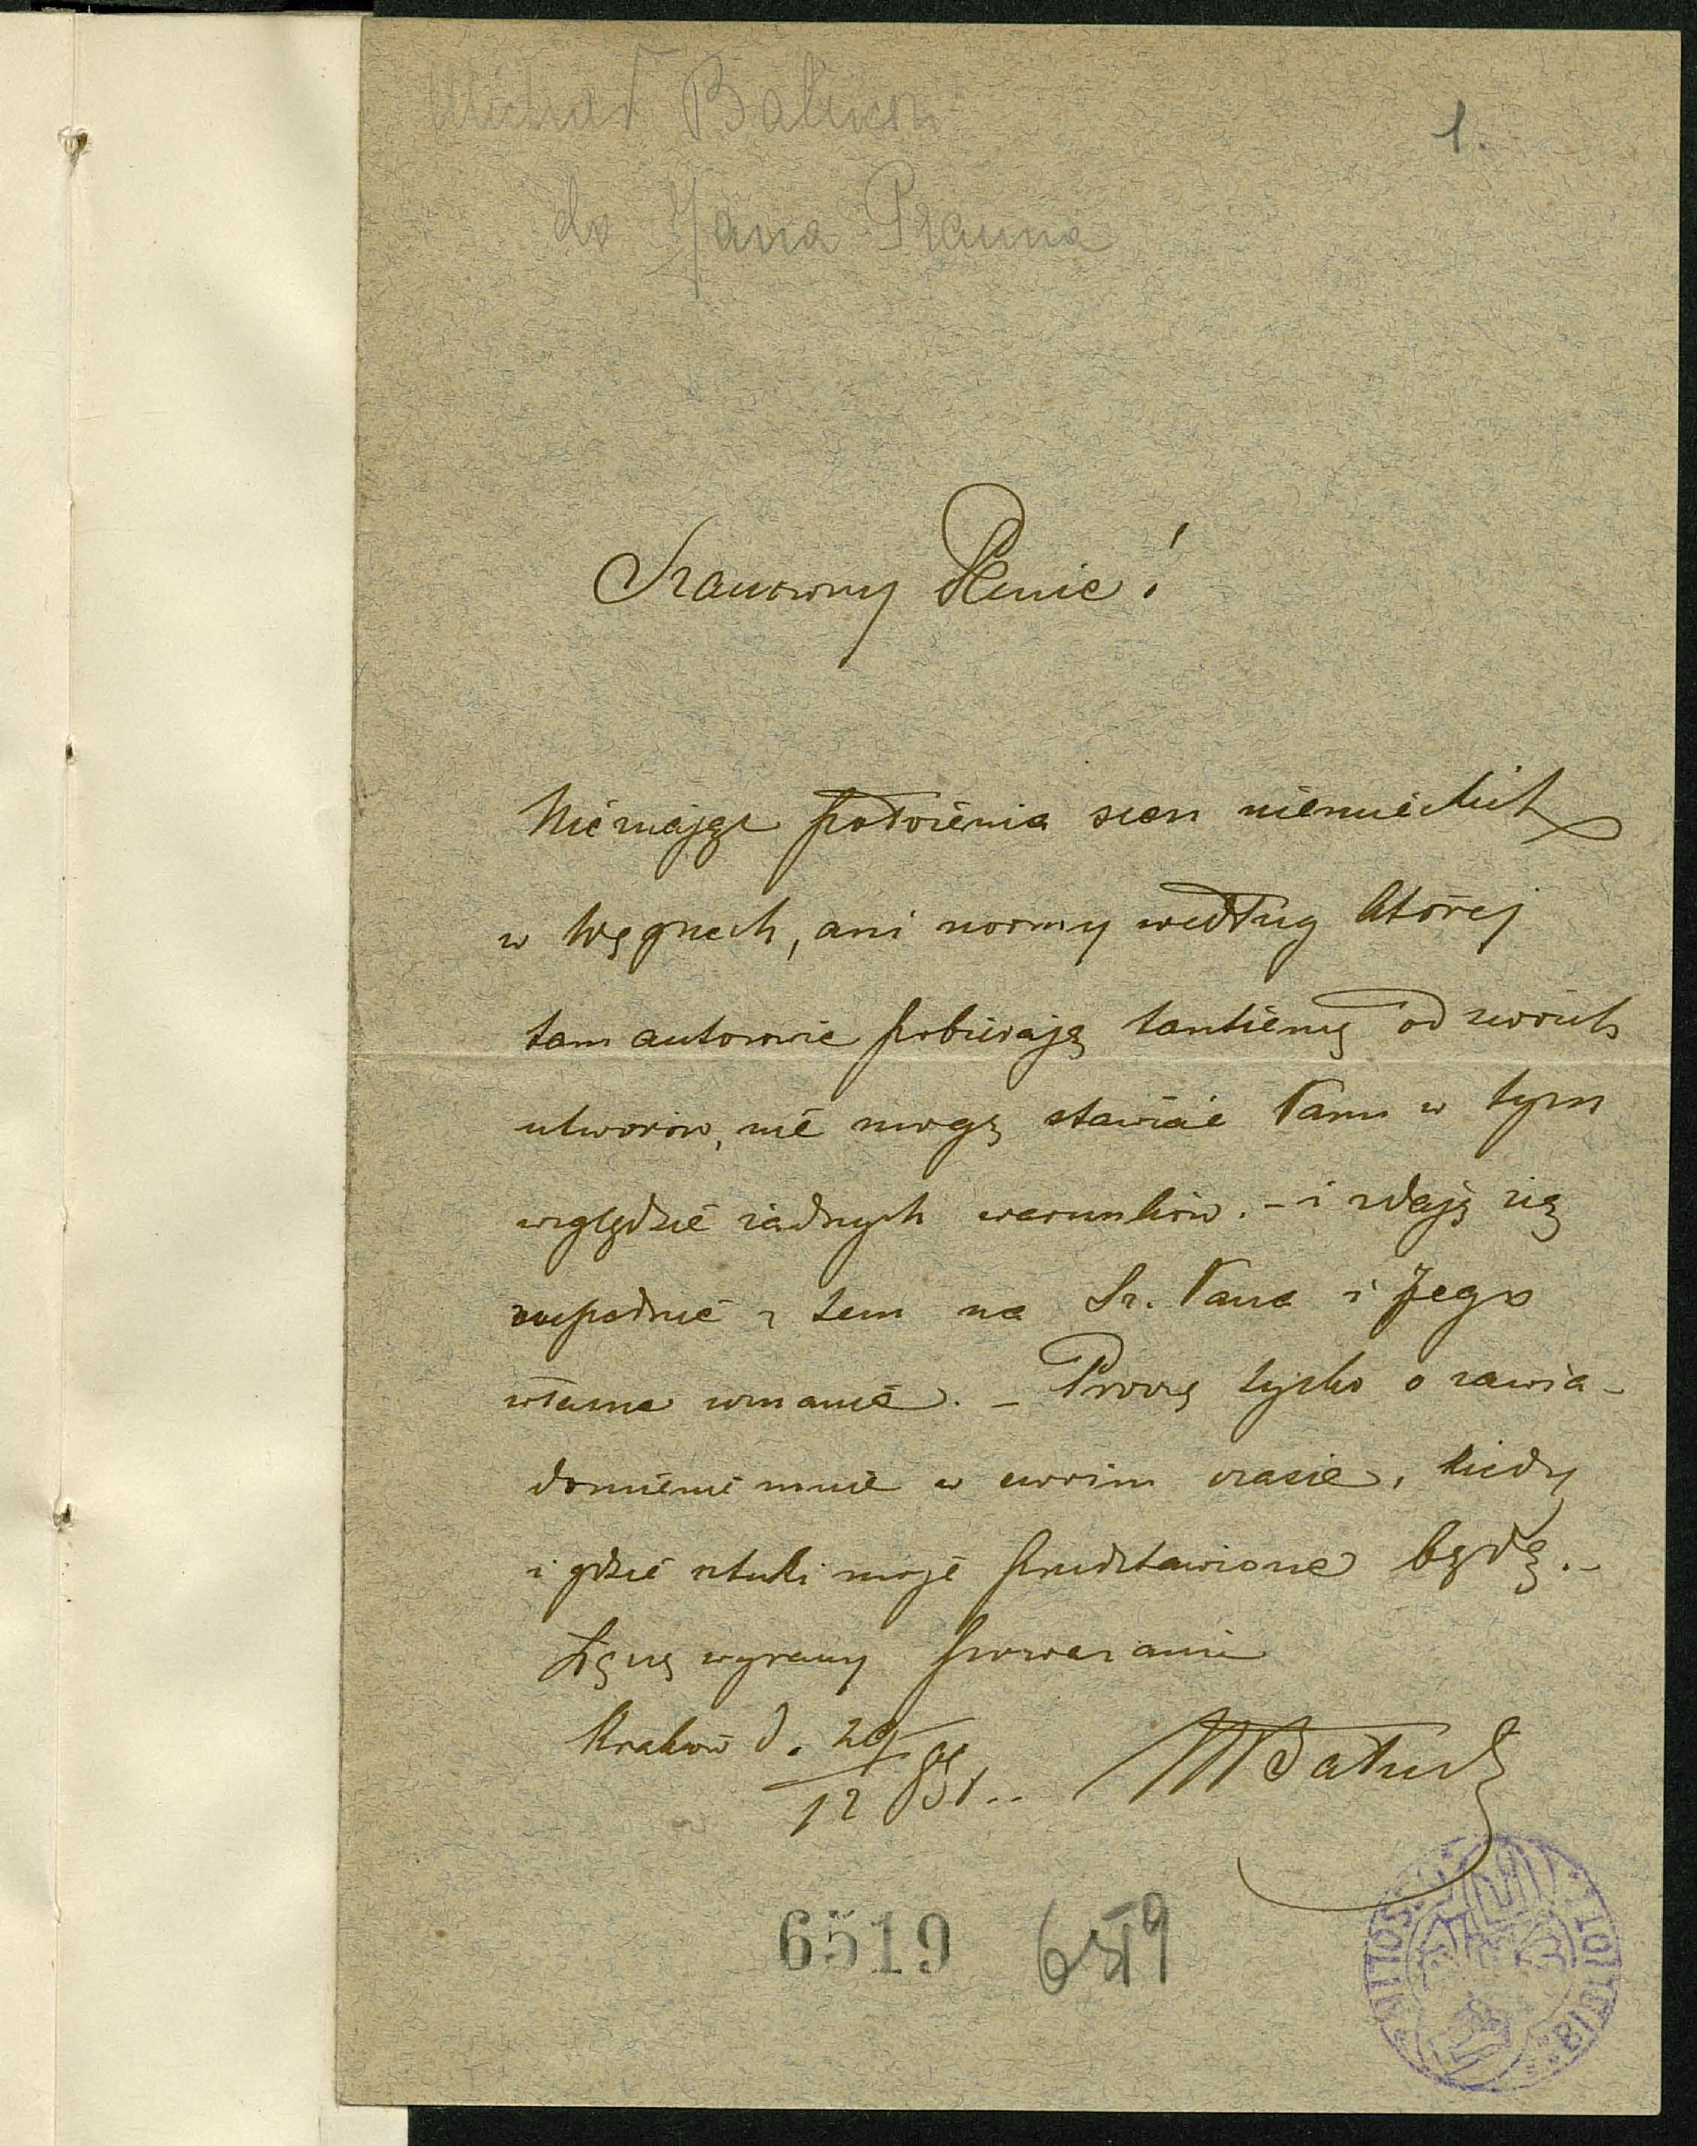 Michał Bałucki
1.
do Jana Prauna
Szanowny Panie!
Nie znając położenia scen niemieckich
w Węgrzech, ani normy według której
tam autorowie pobierają tantiemę od swoich
utworów, nie mogę stawiać Panu w tym
względzie żadnych warunków. – i zdaję się
zupełnie z tem na Sz. Pana i Jego
własne uznanie. – Proszę tylko o zawia-
domienie mnie w swoim czasie, kiedy
i gdzie sztuki moje przedstawione będą. –
Łączę wyrazy poważania
Kraków d. 29/12
MBałucki
6519 6519